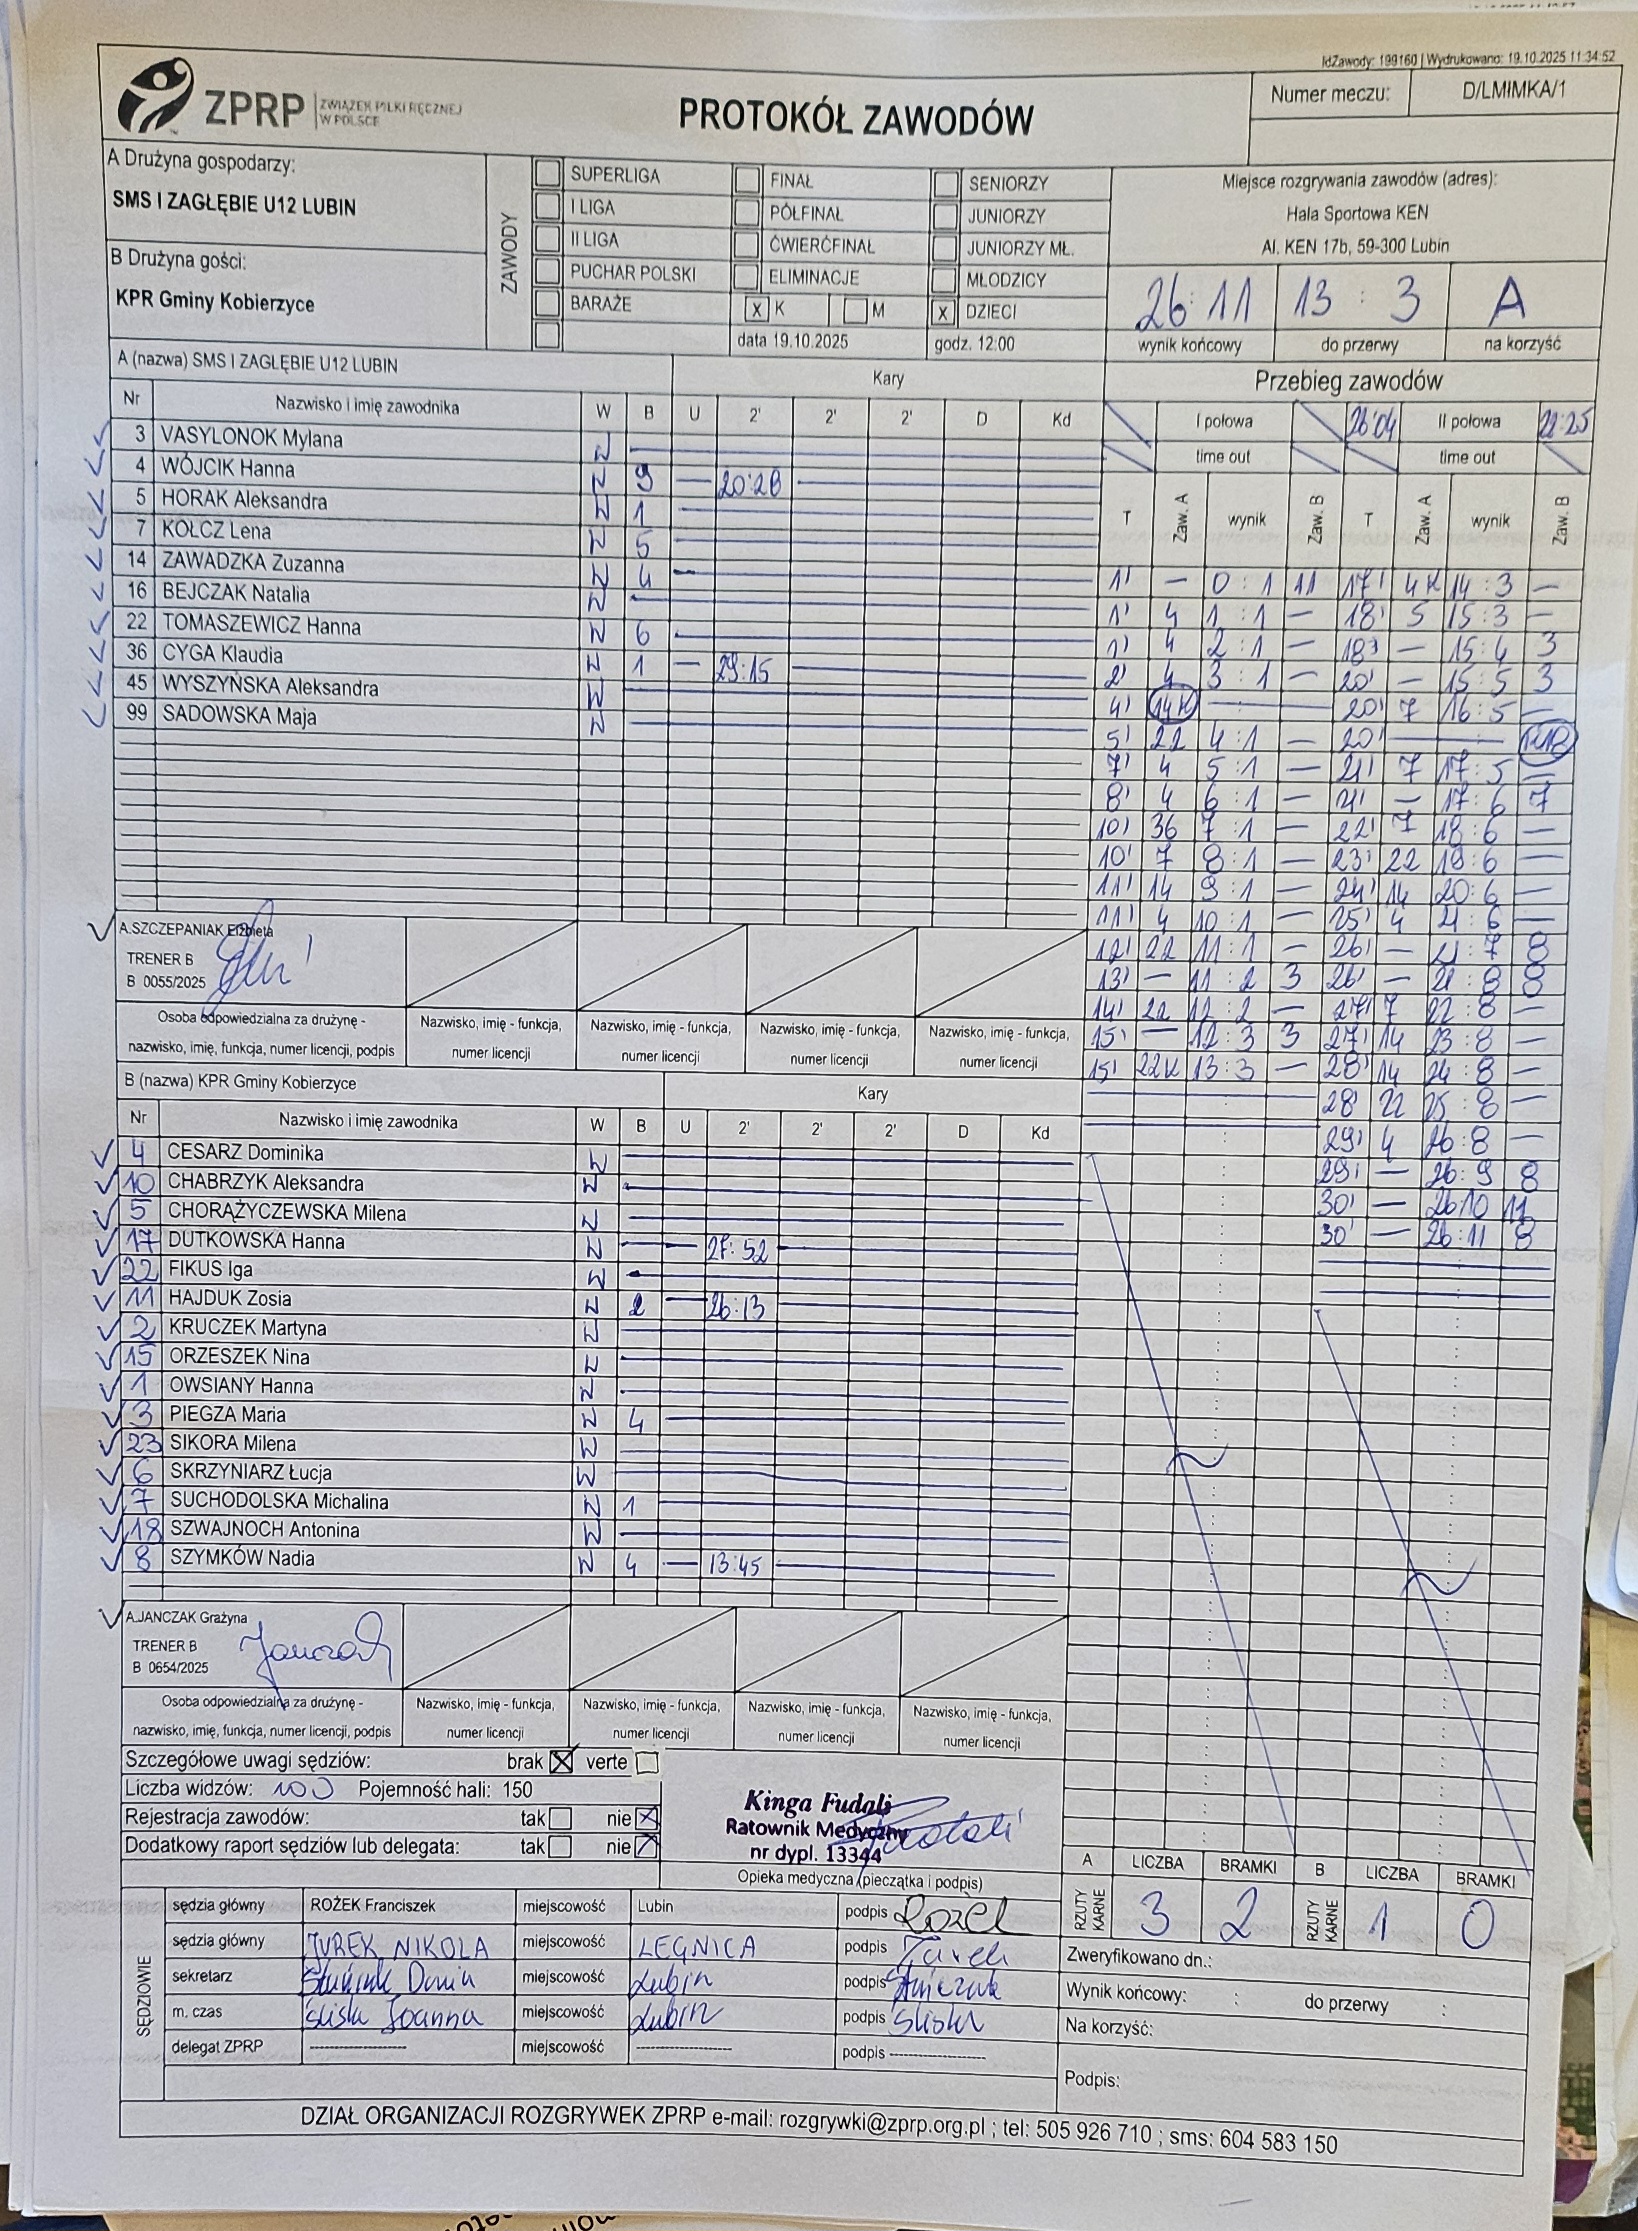 IdZawody: 199160 | Wydrukowano: 19.10.2025 11:34:52
ZPRP ZWIĄZEK PIŁKI RĘCZNEJ W POLSCE
PROTOKÓŁ ZAWODÓW
Numer meczu: D/LMIMKA/1
A Drużyna gospodarzy:
SMS I ZAGŁĘBIE U12 LUBIN
B Drużyna gości:
KPR Gminy Kobierzyce
ZAWODY
SUPERLIGA FINAŁ SENIORZY
I LIGA PÓŁFINAŁ JUNIORZY
II LIGA ĆWIERĆFINAŁ JUNIORZY MŁ.
PUCHAR POLSKI ELIMINACJE MŁODZICY
BARAŻE X K M X DZIECI
data 19.10.2025 godz. 12:00
Miejsce rozgrywania zawodów (adres):
Hala Sportowa KEN
Al. KEN 17b, 59-300 Lubin
26:11 13 : 3 A
wynik końcowy do przerwy na korzyść
A (nazwa) SMS I ZAGŁĘBIE U12 LUBIN Kary
Nr Nazwisko i imię zawodnika W B U 2' 2' 2' D Kd
3 VASYLONOK Mylana W
4 WÓJCIK Hanna W 9 — 20:28
5 HORAK Aleksandra W 1
7 KOLCZ Lena W 5
14 ZAWADZKA Zuzanna W 4
16 BEJCZAK Natalia W
22 TOMASZEWICZ Hanna W 6
36 CYGA Klaudia W 1 — 29:15
45 WYSZYŃSKA Aleksandra W
99 SADOWSKA Maja W
A.SZCZEPANIAK Elżbieta
TRENER B
B 0055/2025
Osoba odpowiedzialna za drużynę -
nazwisko, imię, funkcja, numer licencji, podpis
Nazwisko, imię - funkcja, numer licencji
Nazwisko, imię - funkcja, numer licencji
Nazwisko, imię - funkcja, numer licencji
Nazwisko, imię - funkcja, numer licencji
B (nazwa) KPR Gminy Kobierzyce Kary
Nr Nazwisko i imię zawodnika W B U 2' 2' 2' D Kd
4 CESARZ Dominika W
10 CHABRZYK Aleksandra W
5 CHORĄŻYCZEWSKA Milena W
17 DUTKOWSKA Hanna W — 27:52
22 FIKUS Iga W
11 HAJDUK Zosia W 2 — 26:13
2 KRUCZEK Martyna W
15 ORZESZEK Nina W
1 OWSIANY Hanna W
3 PIEGZA Maria W 4
23 SIKORA Milena W
6 SKRZYNIARZ Łucja W
7 SUCHODOLSKA Michalina W 1
18 SZWAJNOCH Antonina W
8 SZYMKÓW Nadia W 4 — 13:45
A.JANCZAK Grażyna
TRENER B
B 0654/2025
Osoba odpowiedzialna za drużynę -
nazwisko, imię, funkcja, numer licencji, podpis
Nazwisko, imię - funkcja, numer licencji
Nazwisko, imię - funkcja, numer licencji
Nazwisko, imię - funkcja, numer licencji
Nazwisko, imię - funkcja, numer licencji
Przebieg zawodów
I połowa 26:04 II połowa 22:25
time out time out
T Zaw. A wynik Zaw. B T Zaw. A wynik Zaw. B
1' — 0 : 1 11 17' 4K 14 : 3 —
1' 4 1 : 1 — 18' 5 15 : 3 —
1' 4 2 : 1 — 18' — 15 : 4 3
2' 4 3 : 1 — 20' — 15 : 5 3
4' 14K — 20' 7 16 : 5 —
5' 22 4 : 1 — 20' —
7' 4 5 : 1 — 21' 7 17 : 5 —
8' 4 6 : 1 — 21' — 17 : 6 7
10' 36 7 : 1 — 22' 7 18 : 6 —
10' 7 8 : 1 — 23' 22 19 : 6 —
11' 14 9 : 1 — 24' 14 20 : 6 —
11' 4 10 : 1 — 25' 4 21 : 6 —
12' 22 11 : 1 — 26' — 21 : 7 8
13' — 11 : 2 3 26' — 21 : 8 8
14' 22 12 : 2 — 27' 7 22 : 8 —
15' — 12 : 3 3 27' 14 23 : 8 —
15' 22K 13 : 3 — 28' 14 24 : 8 —
28' 22 25 : 8 —
29' 4 26 : 8 —
29' — 26 : 9 8
30' — 26:10 11
30' — 26:11 8
Szczegółowe uwagi sędziów: brak X verte
Liczba widzów: 100 Pojemność hali: 150
Rejestracja zawodów: tak nie X
Dodatkowy raport sędziów lub delegata: tak nie X
Kinga Fudali
Ratownik Medyczny
nr dypl. 13344
Opieka medyczna (pieczątka i podpis)
A LICZBA BRAMKI B LICZBA BRAMKI
RZUTY KARNE 3 2 RZUTY KARNE 1 0
SĘDZIOWIE
sędzia główny ROŻEK Franciszek miejscowość Lubin podpis Rożek
sędzia główny JUREK NIKOLA miejscowość LEGNICA podpis Jurek
sekretarz miejscowość Lubin podpis
m. czas Śliska Joanna miejscowość Lubin podpis Śliska
delegat ZPRP ---------- miejscowość ---------- podpis ----------
Zweryfikowano dn.:
Wynik końcowy: : do przerwy :
Na korzyść:
Podpis:
DZIAŁ ORGANIZACJI ROZGRYWEK ZPRP e-mail: rozgrywki@zprp.org.pl ; tel: 505 926 710 ; sms: 604 583 150